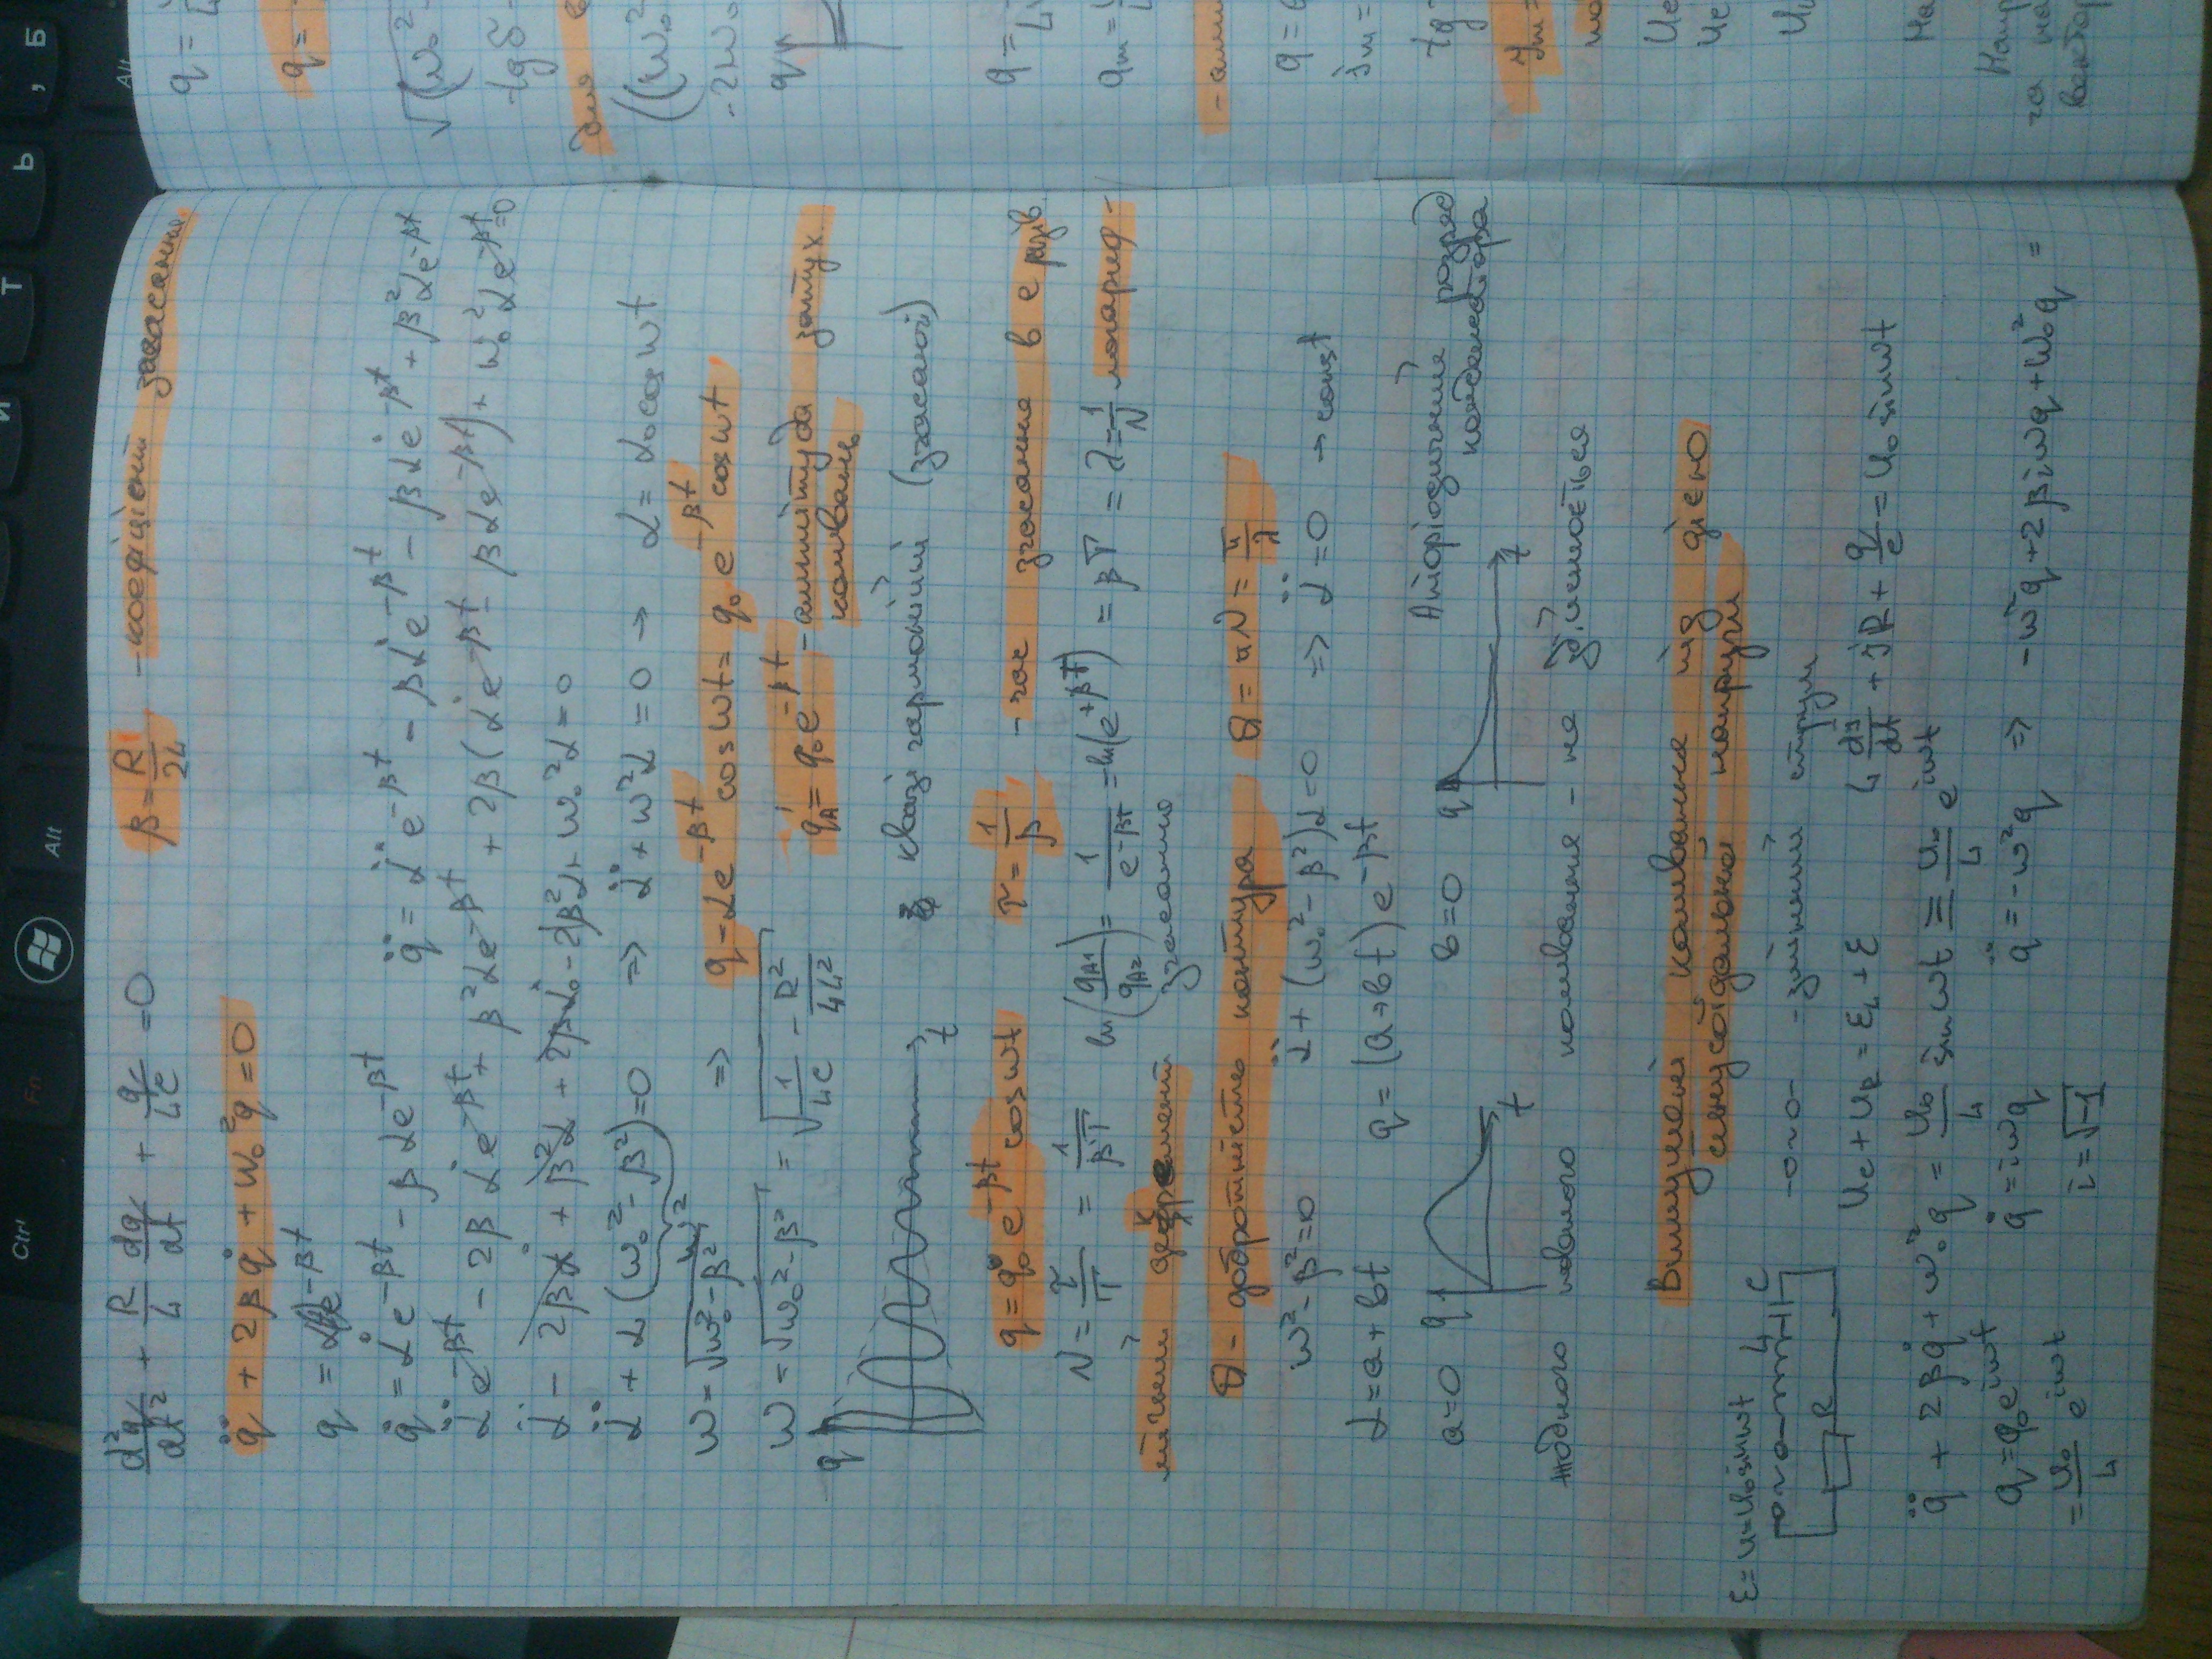 Ctrl Fn Alt И Т Ь , Б
Alt
d²q/dt² + R/L dq/dt + q/LC = 0 β = R/2L - коефіцієнт загасання
q̈ + 2βq̇ + ω₀²q = 0
q = α(t)e^(-βt)
q̇ = α̇e^(-βt) - βαe^(-βt) q̈ = α̈e^(-βt) - βα̇e^(-βt) - βα̇e^(-βt) + β²αe^(-βt)
α̈e^(-βt) - 2βα̇e^(-βt) + β²αe^(-βt) + 2β(α̇e^(-βt) - βαe^(-βt)) + ω₀²αe^(-βt) = 0
α̈ - 2βα̇ + β²α + 2βα̇ - 2β²α + ω₀²α = 0
α̈ + α(ω₀² - β²) = 0 => α̈ + ω²α = 0 → α = α₀cosωt
ω²
ω = √(ω₀² - β²) => q = αe^(-βt) cosωt = q₀e^(-βt) cosωt
ω = √(ω₀² - β²) = √(1/LC - R²/4L²) q_A = q₀e^(-βt) - амплітуда затух.
коливань
q t квазі гармонійні (згасаючі)
q = q₀e^(-βt) cosωt τ = 1/β - час згасання в e разів
N = τ/T = 1/βT ln(q_A1/q_A2) = 1/e^(-βT) = ln(e^(+βT)) = βT = λ = 1/N логариф-
мічний декремент згасання
Q - добротність контура Q = πN = π/λ
ω² - β² = 0 α̈ + (ω₀² - β²)α = 0 => α̈ = 0 → const
α = a + bt q = (a + bt)e^(-βt)
a = 0 q t b = 0 q t Аперіодичний розряд
конденсатора
жодного повного коливання - не здійснюється
Вимушені коливання під дією
синусоїдальної напруги
ε = u = u₀sinωt L C
R - змінний струм
u_C + u_R = ε_L + ε L dJ/dt + JR + q/C = u₀sinωt
q̈ + 2βq̇ + ω₀²q = u₀/L sinωt ≡ u₀/L e^(iωt)
q = q₀e^(iωt) q̇ = iωq q̈ = -ω²q => -ω²q + 2βiωq + ω₀²q =
= u₀/L e^(iωt) i = √-1
q =
q =
√(ω₀² -
tgδ
для
((ω₀²
-2ω₀
q
q =
q_m =
q =
J_m =
tg
J_m =